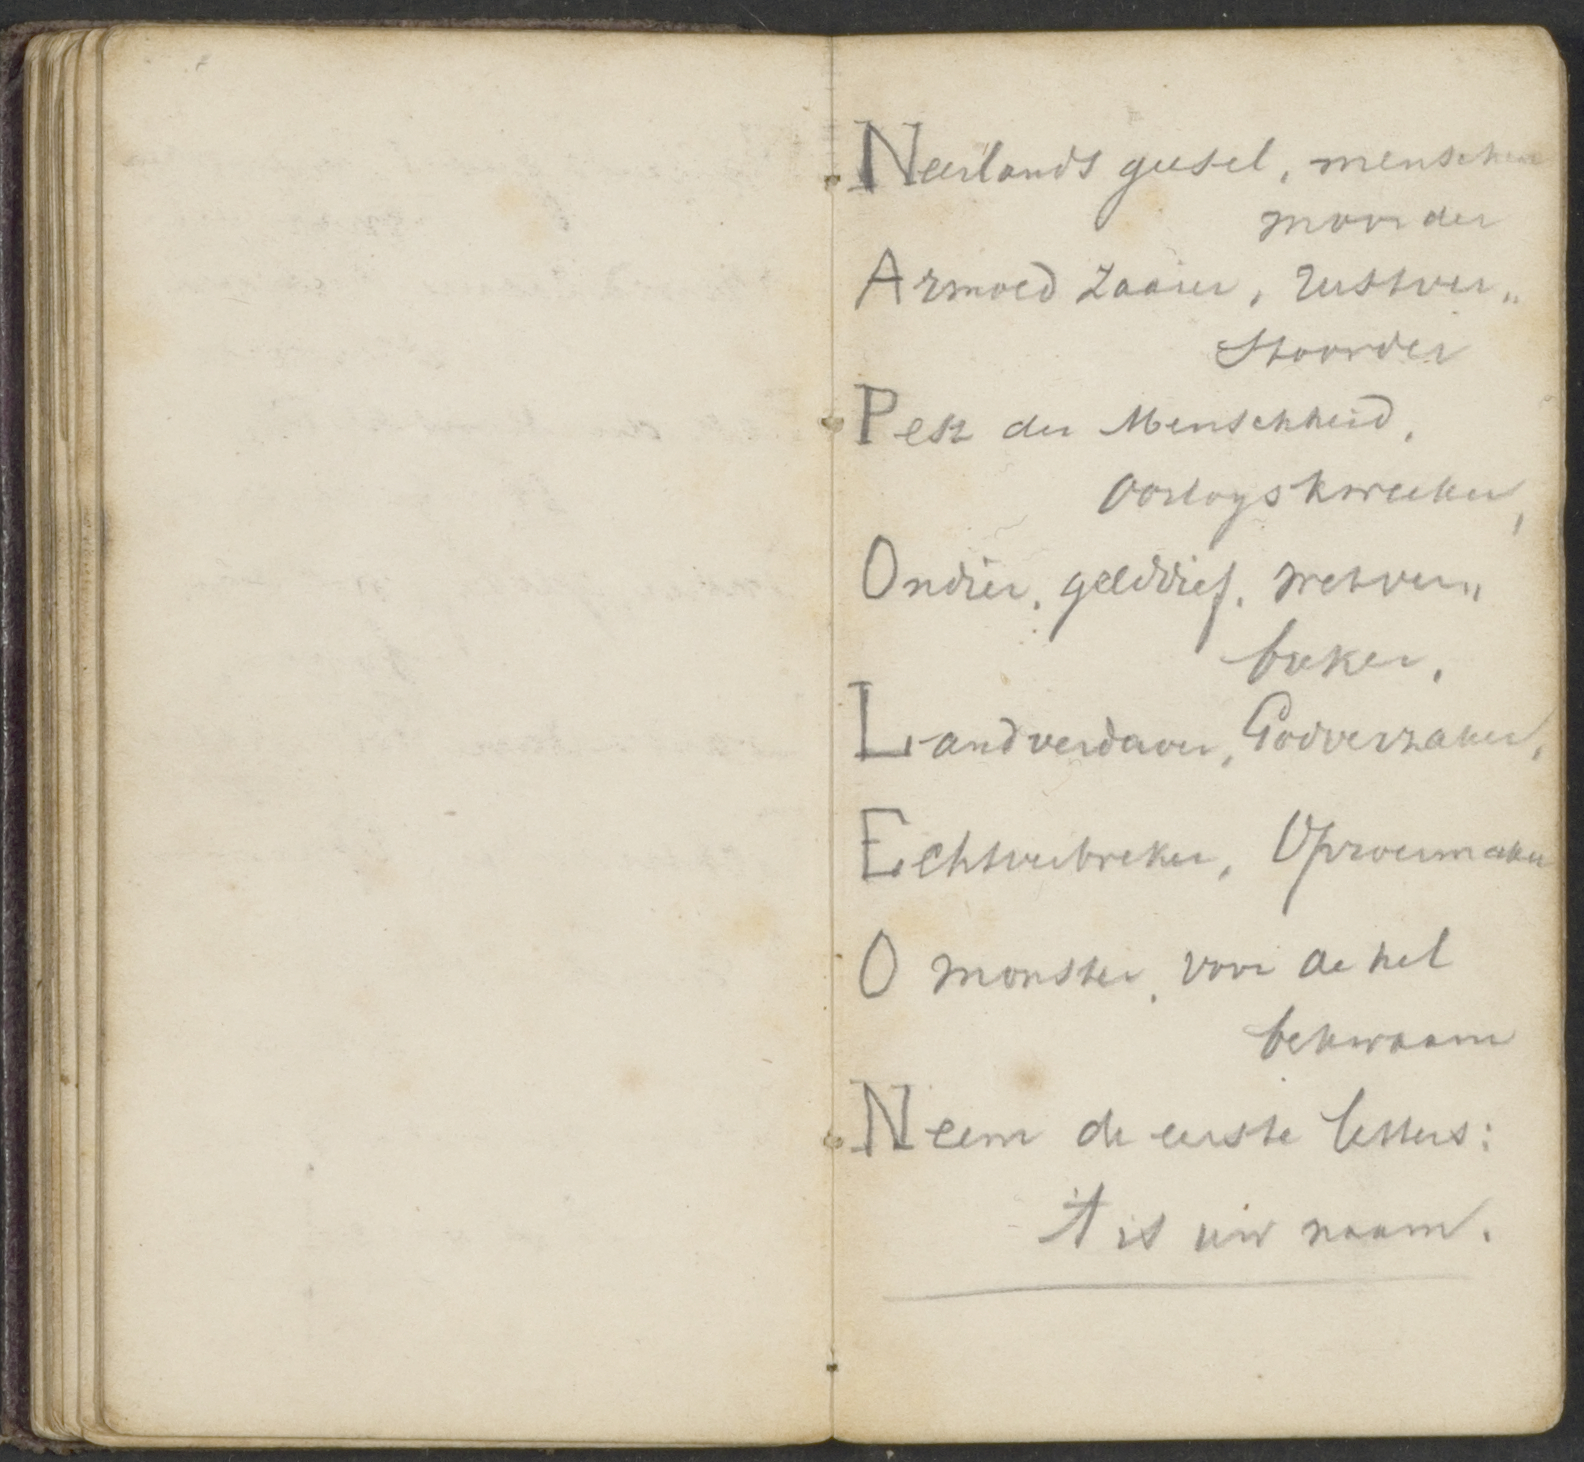 Neerlands geesel, menschen
moorder
Armoed zaaier, rustver„
stoorder
Pest der Menschheid,
oorlogskweeker,
Ondier, gelddief, wetver„
breker,
Landverdaver, Godverzaker,
Echtverbreker, Oproermaker
O monster, voor de hel
bekwaam
Neem de eerste letters:
't is uw naam.